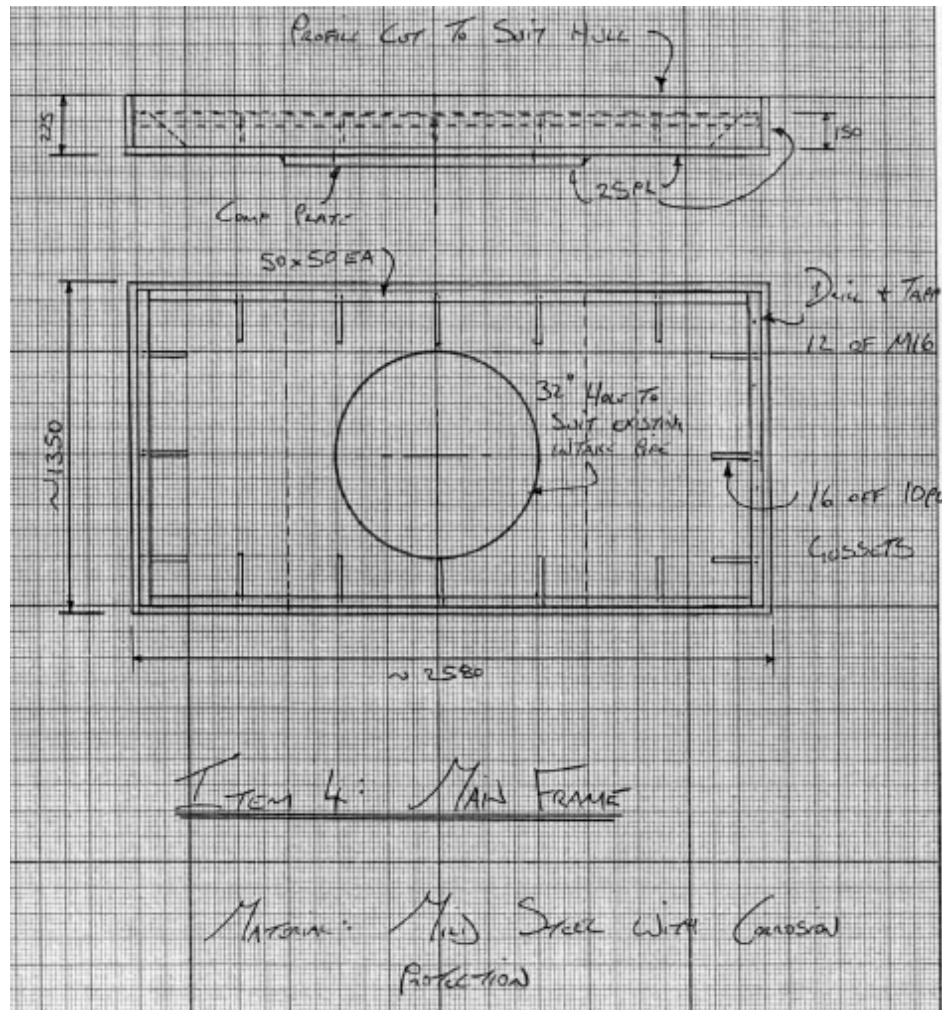 PROFILE CUT TO SUIT HULL
225
150
COMP PLATE
25PL
50 x 50 EA
DRILL + TAPP
12 OF M16
32" HOLE TO
SUIT EXISTING
INTAKE PIPE
~1350
16 OFF 10PL
GUSSETS
~ 2580
ITEM 4: MAIN FRAME
MATERIAL: MILD STEEL WITH CORROSION
PROTECTION